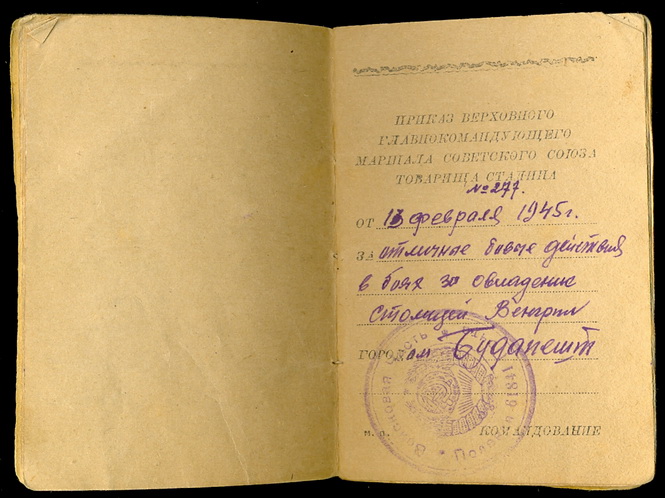 ПРИКАЗ ВЕРХОВНОГО
ГЛАВНОКОМАНДУЮЩЕГО
МАРШАЛА СОВЕТСКОГО СОЮЗА
ТОВАРИЩА СТАЛИНА
№ 277.
ОТ 13 февраля 1945 г.
ЗА отличные боевые действия
в боях за овладение
столицей Венгрии
городом Будапешт
м. п. КОМАНДОВАНИЕ
Войсковая часть Полевая